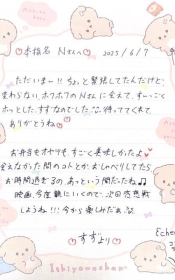 本指名 Nさんへ 2025/6/7
ただいまー!! ちょっと緊張してたんだけど、
変わらない、ホワホワのNさんに会えて、すーっごく
ホッとした、すずなのでした 待っててくれて、
ありがとうね♡
お弁当もオヤツも、すごく美味しかったよ
会えなかった間のコトとか、おしゃべりしてたら
お時間過ぎるの、あっという間だたね♫
映画、今度観にいくので、次回感想戦
しようね!!! 今から楽しみだぁ
すずより
Eche
Ishiyowashan